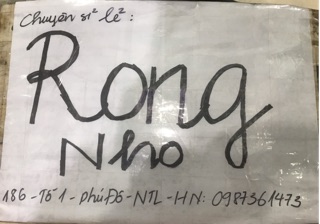 Chuyên sỉ lẻ:
Rong
Nho
186-Tổ 1-Phú Đô-NTL-HN: 0987361473